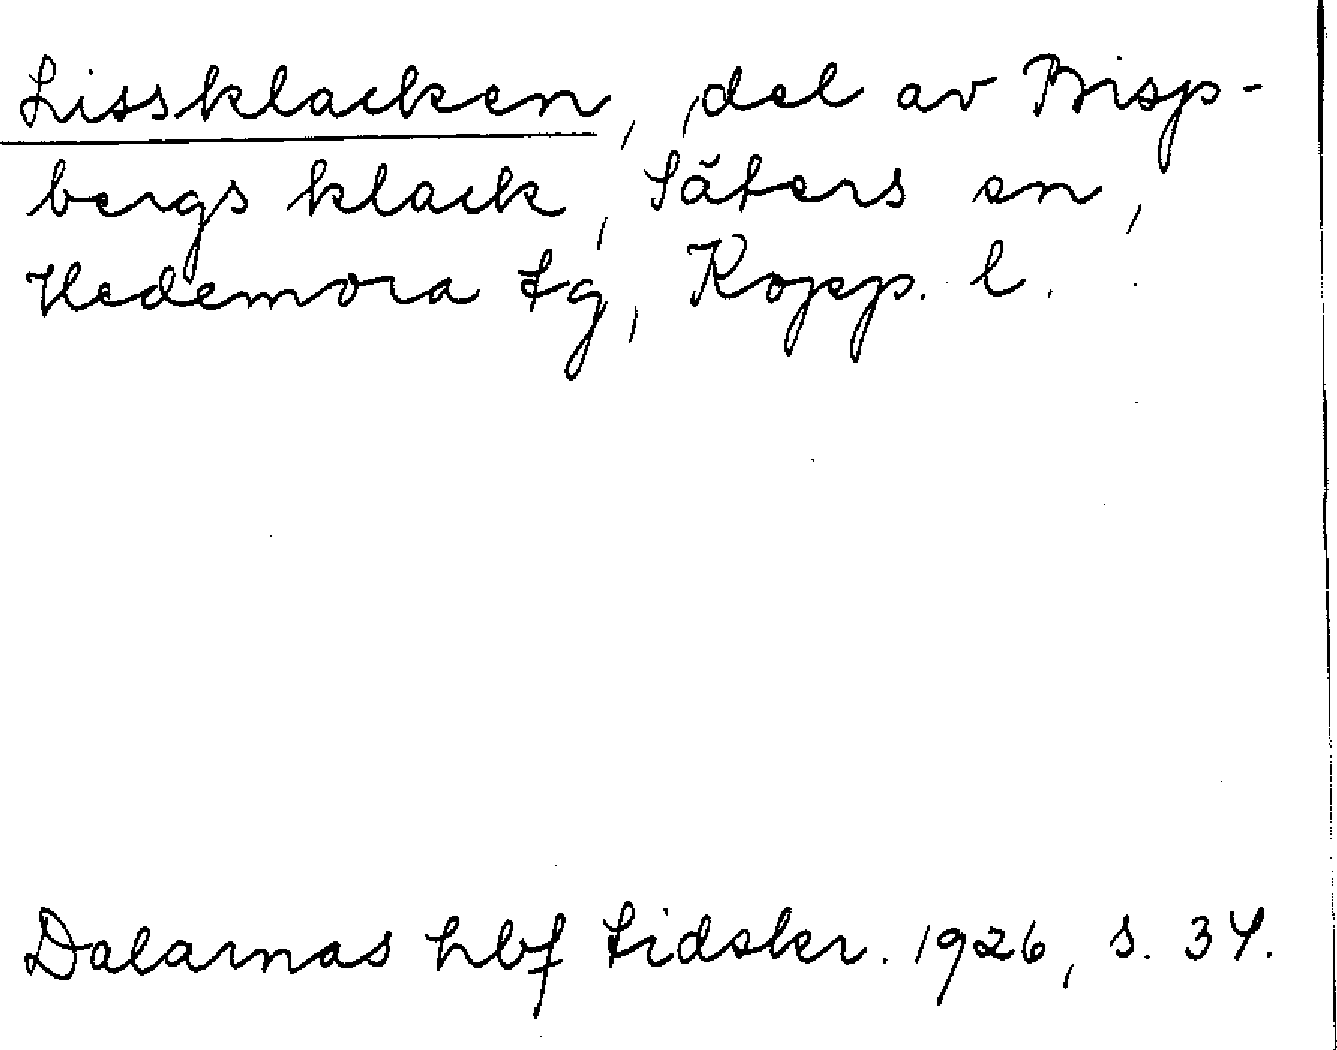 Lissklacken, del av Bisp-
bergs klack, Säters sn,
Hedemora tg, Kopp. l.
Dalarnas hbf tidskr. 1926, s. 34.